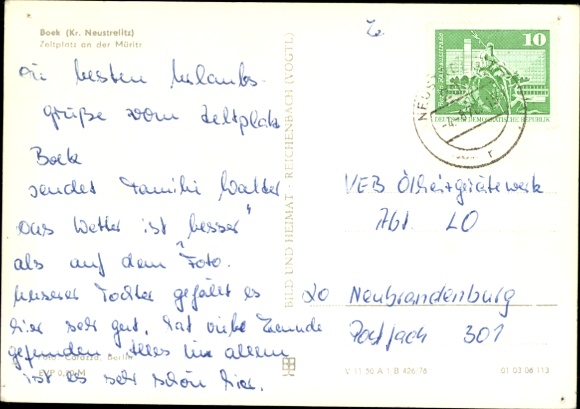 Boek (Kr. Neustrelitz)
Zeltplatz an der Müritz
Die besten Urlaubs-
grüße vom Zeltplatz
Boek
sendet Familie Walter
Das Wetter ist "besser"
als auf dem Foto.
Unserer Tochter gefällt es
hier sehr gut, hat viele Freunde
gefunden. Alles in allem
ist es sehr schön hier.
Foto: Carozza, Berlin
EVP 0,20 M
BILD UND HEIMAT · REICHENBACH (VOGTL)
10
DEUTSCHE DEMOKRATISCHE REPUBLIK
VEB Ölheizgerätewerk
Abt. LO
20 Neubrandenburg
Postfach 301
V 11 50 A 1 B 426/76
01 03 06 113